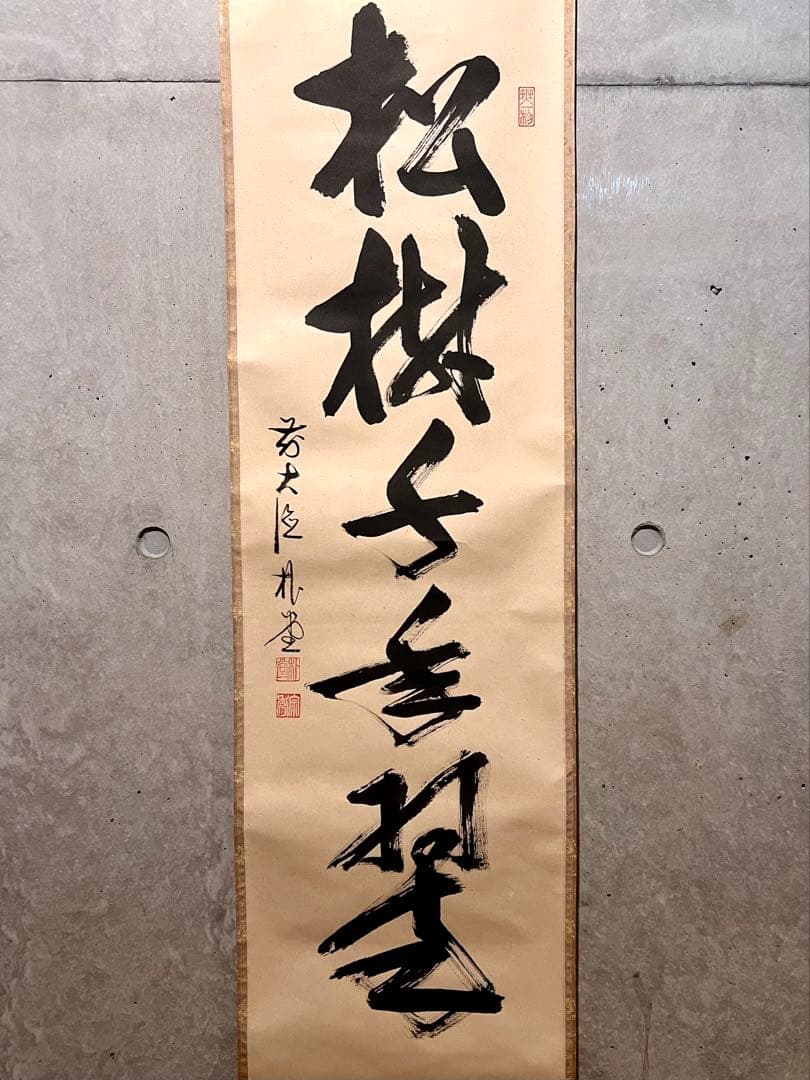 松樹千年翠
前大徳 桂堂